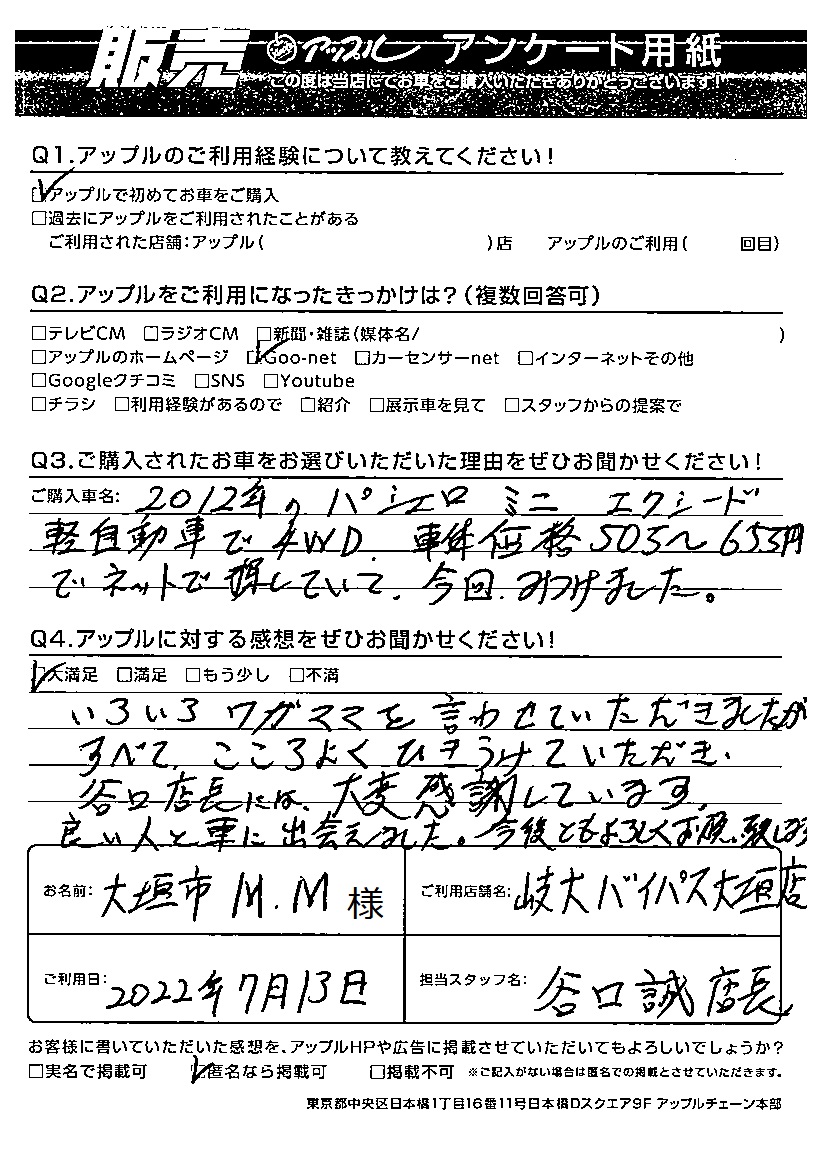 販売 アップル アンケート用紙
この度は当店にてお車をご購入いただきありがとうございます!
Q1.アップルのご利用経験について教えてください!
☑アップルで初めてお車をご購入
□過去にアップルをご利用されたことがある
ご利用された店舗:アップル( )店 アップルのご利用( 回目)
Q2.アップルをご利用になったきっかけは?(複数回答可)
□テレビCM □ラジオCM □新聞・雑誌(媒体名/ )
□アップルのホームページ ☑Goo-net □カーセンサーnet □インターネットその他
□Googleクチコミ □SNS □Youtube
□チラシ □利用経験があるので □紹介 □展示車を見て □スタッフからの提案で
Q3.ご購入されたお車をお選びいただいた理由をぜひお聞かせください!
ご購入車名: 2012年の パジェロ ミニ エクシード
軽自動車で4WD、車体価格505〜653円
でネットで探していて、今回、みつけました。
Q4.アップルに対する感想をぜひお聞かせください!
☑大満足 □満足 □もう少し □不満
いろいろワガママを言わせていただきましたが
すべて、こころよくひきうけていただき、
谷口店長には、大変感謝しています。
良い人と車に出会えました。今後ともよろしくお願い致します
お名前: 大垣市 M.M 様 ご利用店舗名: 岐大バイパス大垣店
ご利用日: 2022年7月13日 担当スタッフ名: 谷口誠店長
お客様に書いていただいた感想を、アップルHPや広告に掲載させていただいてもよろしいでしょうか?
□実名で掲載可 ☑匿名なら掲載可 □掲載不可 ※ご記入がない場合は匿名での掲載とさせていただきます。
東京都中央区日本橋1丁目16番11号日本橋Dスクエア9F アップルチェーン本部